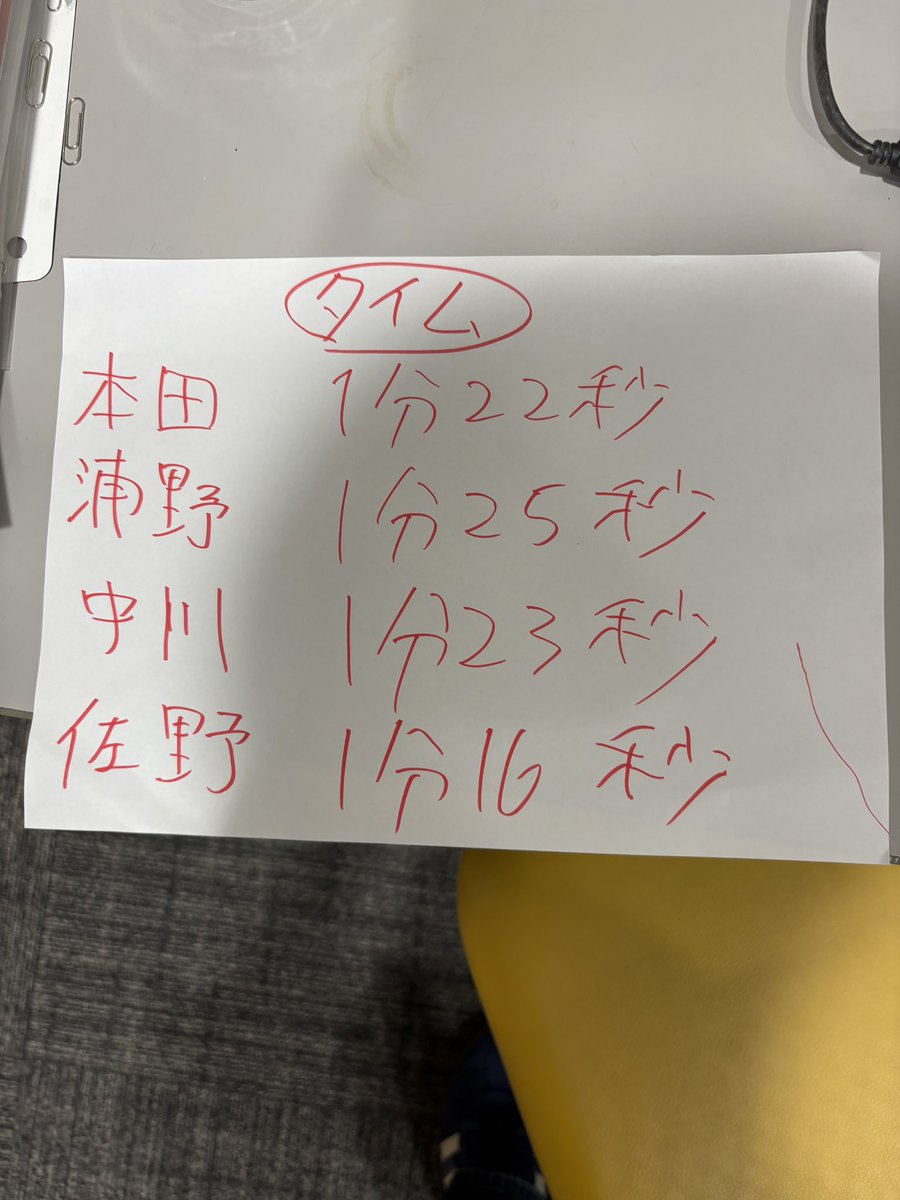 タイム
本田 1分22秒
浦野 1分25秒
中川 1分23秒
佐野 1分16秒